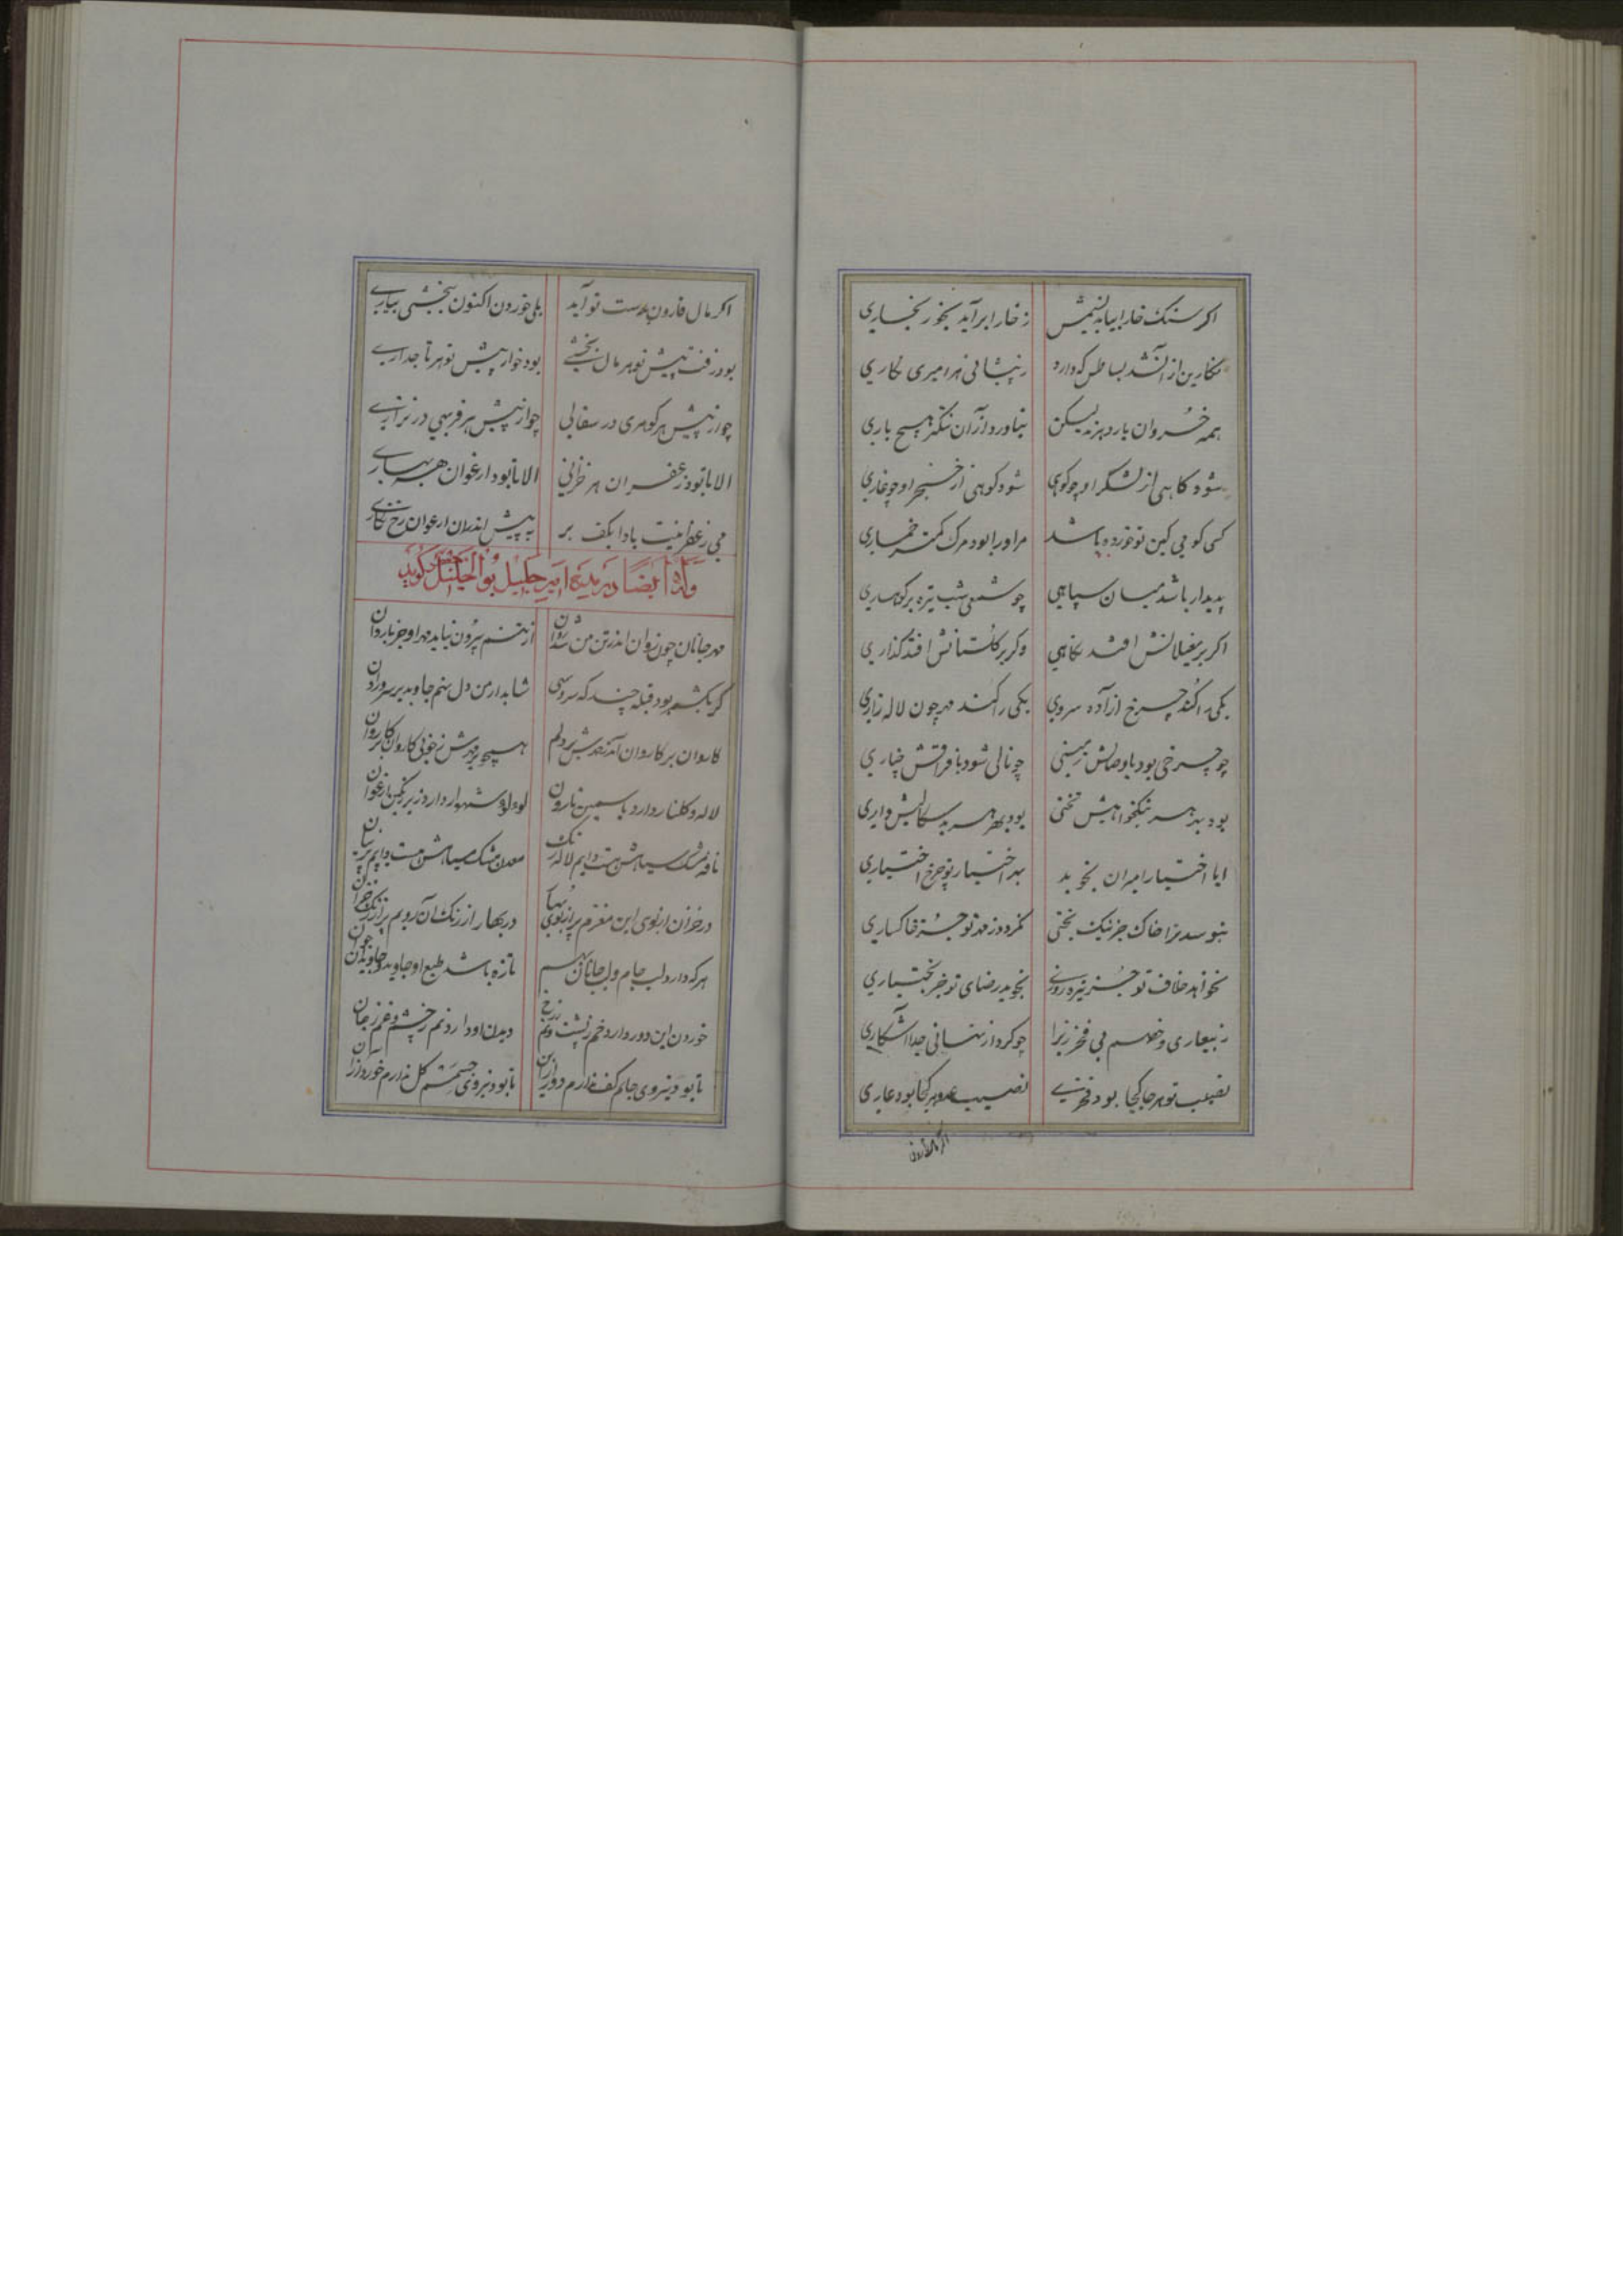 اکر سنک خارا بیابد نسیمش زخارا برآید بخور بخاری
نکارین از آن شد بساطش که دارد زپیشانی هر امیری نکاری
همه خسروان بار دیدند لیکن نیاورد از آن تنکتر هیچ باری
شود کاهی از لشکر او چو کوهی شود کوهی از خنجر او چو غاری
کسی کو می کین تو خورده باشد مر او را بود مرک کمتر خماری
پدیدار باشد میان سپاهی چو شمعی شب تیره بر کوهساری
اکر بر مغیلانش افتد نکاهی وکر بر کلستانش افتد کذاری
یکی را کند چرخ آزاده سروی یکی را کند مهر چون لاله زاری
چو چرخی بود با وصالش زمینی چو نالی شود با فراقش چناری
بود بهر هر نیکخواهیش تختی بود بهر هر بد سکالیش داری
ایا اختیار امیران نجوید بد اختیار تو چرخ اختیاری
نبوسد ترا خاک جز نیک بختی نکردد ز قدر تو جز خاکساری
نخواهد خلاف تو جز تیره روزی نجوید رضای تو جز بختیاری
ز بیعاری و خصم بی فخر زیرا چو کرد از نهانی جدا آشکاری
نصیب تو هر جا کجا بود فخری نصیب عدو هر کجا بود عاری
اکر مال قارون
اکر مال قارون بدست تو آید بلی خوردن اکنون ببخشی بباری
بود زفت پیش تو هر مال بخشی بود خوار پیش تو هر تاجداری
چو از پیش هر کوهری در سفالی چو از پیش هر فربهی در نزاری
الا تا بود زعفران هر خزانی الا تا بود ارغوان هر بهاری
می زعفرانیت بادا بکف بر به پیش اندران ارغوان رخ نکاری
وله ایضا در مدح امیر جلیل بوالخلیل کوید
مهر جانان چون روان اندر تن من شد روان از تنم بیرون نیاید مهر او جز با روان
کر بکشمر بود قبله چند که سرو سهی شاید ار من دل نهم جاوید بر سرو روان
کاروان بر کاروان آمد زمهرش بر دلم هیچ بر مهرش زخوبی کاروان بر کاروان
لاله و کلنار دارد با سمین نارون لؤلؤ شهوار دارد زیر رنکین ارغوان
نافه مشک سیاهش هست دایم لاله رنک معدن مشک سیاهش هست دایم پرنیان
در خزان از بوی این مغزم پر از بوی بهار در بهار از رنک آن رویم پر از رنک خزان
هر که دارد لب جام و لب جانان بهم تازه باشد طبع او جاوید و جاویدان جوان
خوردن این دور دارد خم زپشت و نم زرخ دیدن او دارد نم زچشم و غم زجان
تا بود نیروی جانم کف ندارم دور ازین تا بود نیروی چشمم کل ندارم خوردازان